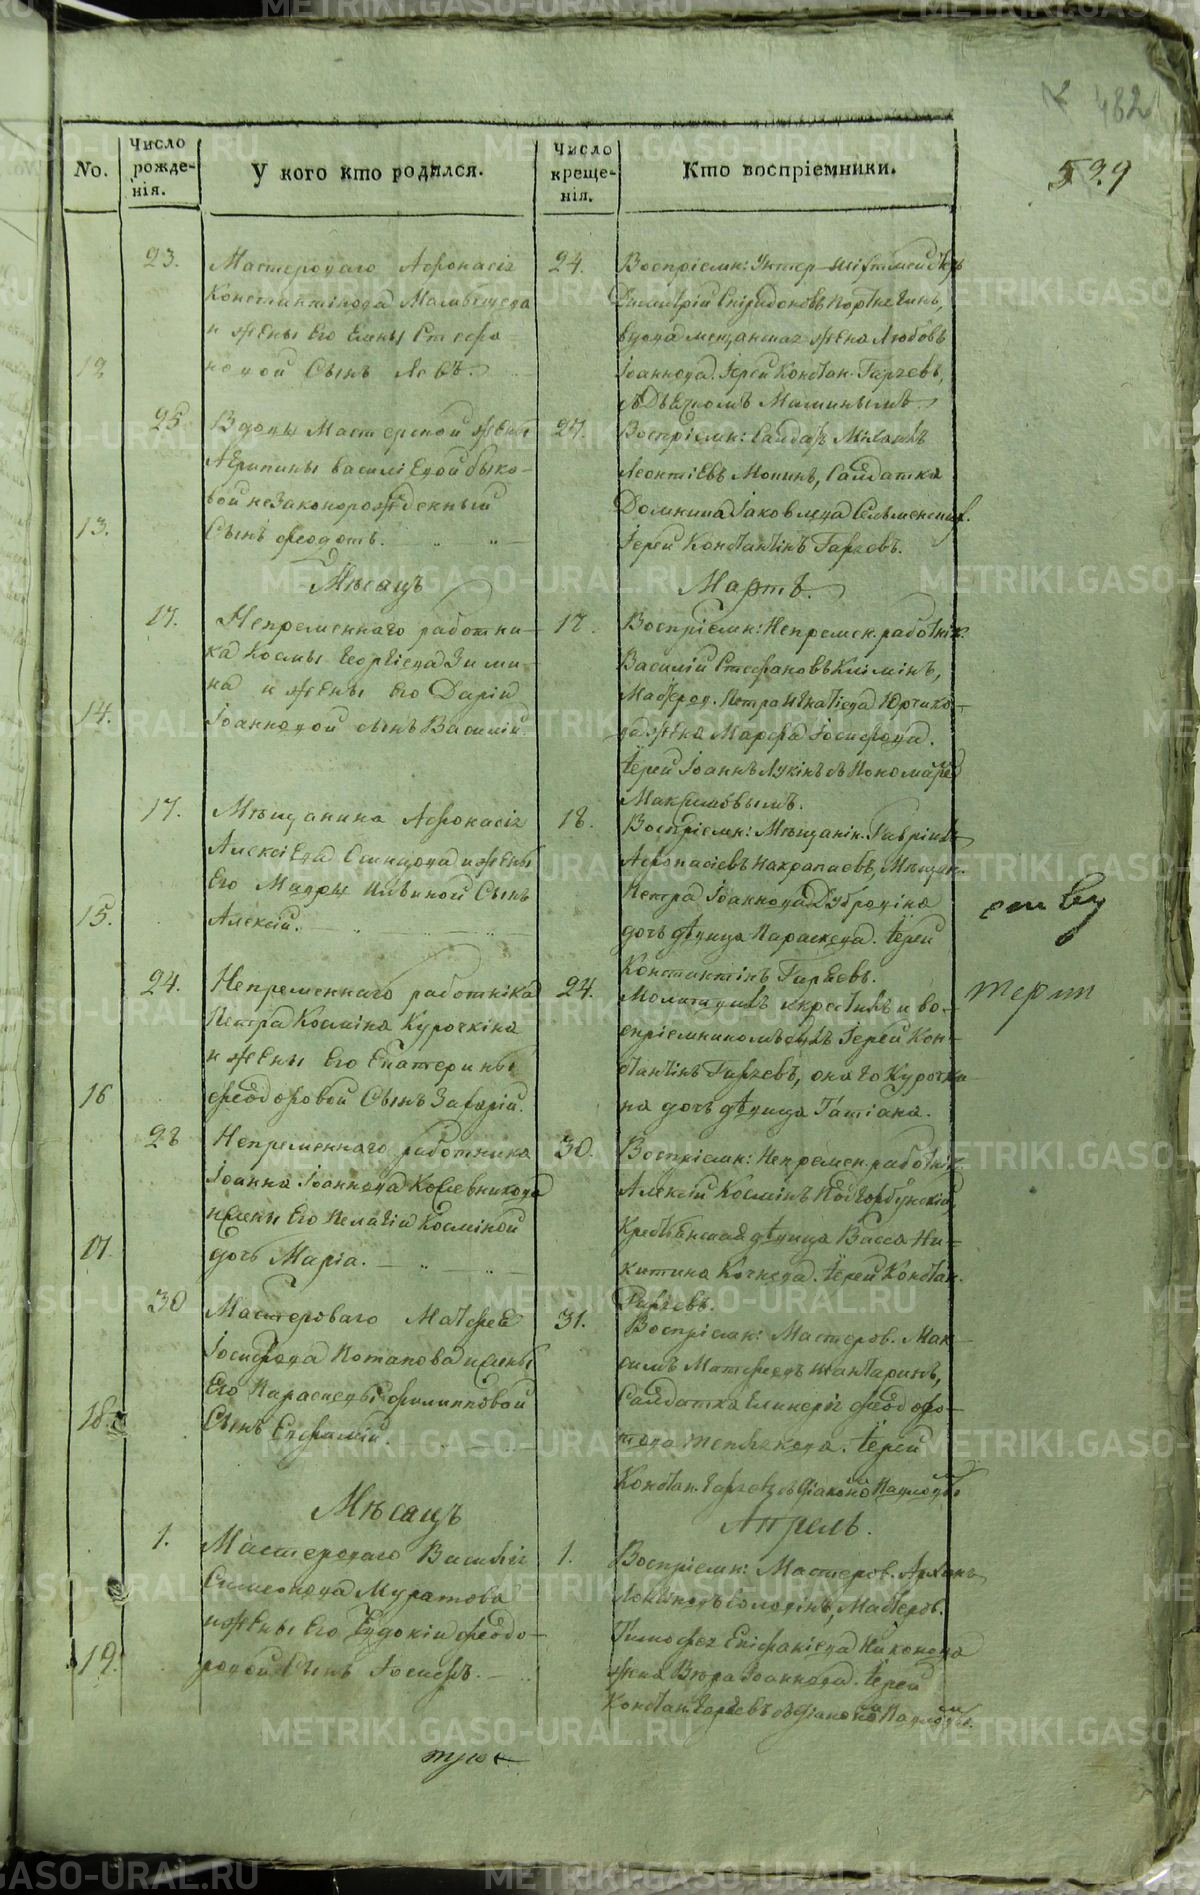 482
529
No.
Число рожденія.
У кого кто родился.
Число крещенія.
Кто воспріемники.
12
23.
Мастероваго Афонасія
Константинова
и жены Его Елены Стефа
новой Сынъ Левъ.
24.
Воспріемн: Унтер-шіхтмейстеръ
Димитрій Спіридоновъ
вдова мещанская жена Любовь
Іоаннова. Іерей Констан. Гаряевъ,
13.
25
Вдовы Мастерской жены
Агрипины Василіевой Быко-
вой незаконорожденный
Сынъ Феодотъ.
27.
Воспріемн: Салдатъ
Леонтіевъ Монинъ, Салдатка
Домнина Іаковлева
Іерей Константінъ Гаряевъ.
Мѣсяцъ
Мартъ.
14.
17.
Непременнаго работни-
ка Космы Георгіева Зими-
на и жены Его Даріи
Іоанновой сынъ Василій
17.
Воспріемн: Непремен. работнік
Василій Стефановъ Клімінъ,
Мастеров. Петра Игнатіева Юрчико-
ва жена Марфа Іосифова.
Іерей Іоаннъ Лукінъ
Максимовымъ.
15.
17.
Мѣщанина Афонасія
Алексіева и жены
Его Мавры Ильиной Сынъ
Алексій.
18.
Воспріемн: Мѣщанін. Гавріилъ
Афонасіевъ Накрапаевъ, Мѣщан.
Петра Іоаннова Дубровіна
дочь дѣвица Параскева. Іерей
Константінъ Гаряевъ.
ст Ву
16
24.
Непременнаго работніка
Петра Косміна Курочкіна
и жены Его Екатерины
Феодоровой Сынъ Захарій.
24.
Молитвилъ и крестилъ и во-
спріемникомъ былъ Іерей Кон-
стантінъ Гаряевъ, онаго Курочки-
на дочь дѣвица Татіана.
терин
17.
28
Непременнаго работника
Іоанна Іоаннова Кожевникова
и жены Его Пелагіи Косміной
дочь Марія.
30.
Воспріемн: Непремен. работнік
Алексій Космінъ Подгорбунскій,
Крестьянская дѣвица Васса Ни-
китина Кочнева. Іерей Констан.
Гаряевъ.
18.
30
Мастероваго Матфея
Іосифова Потапова и жены
Его Параскевы Филипповой
Сынъ Евфимій.
31.
Воспріемн: Мастеров. Мак-
симъ Матфеевъ Шантаринъ,
Салдатка Гликерія Феодоро-
ва. Іерей
Констан. Гаряевъ съ діакономъ Павловымъ
Мѣсяцъ
Апрель.
19.
1.
Мастероваго Василія
Симеонова Муратова
и жены Его Евдокіи Феодо-
ровой Сынъ Іосифъ.
1.
Воспріемн: Мастеров.
Мастеров.
Тимофея Епіфаніева Никонова
жена Вѣра Іоаннова. Іерей
Констан. Гаряевъ съ діакономъ Павловымъ.
METRIKI.GASO-URAL.RU